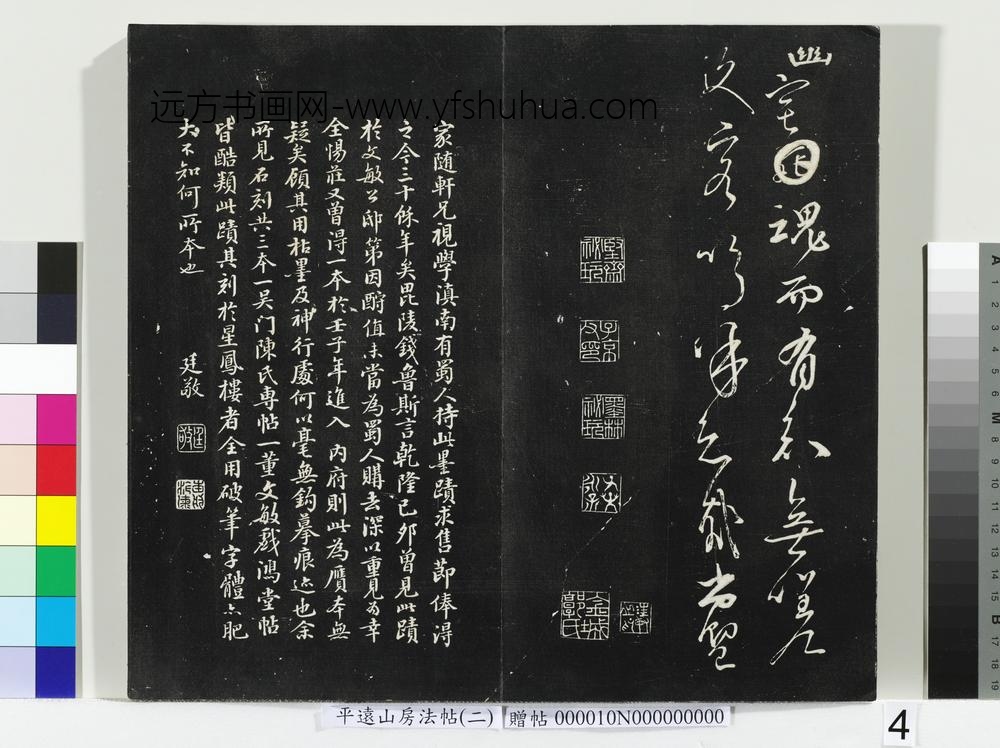 幽宅魂而有知無嗟
久客嗚呼哀哉尚饗
子京父印
墨林祕玩
家隨軒兄視學滇南有蜀人持此墨蹟求售節俸得
之今三十餘年矣毘陵錢魯斯言乾隆己夘曾見此蹟
於文敏公邸第因酧值未當為蜀人購去深以重見為幸
全惕莊又曾得一本於壬子年進入 內府則此為贋本無
疑矣顧其用枯墨及神行處何以毫無鈎摹痕迹也余
所見石刻共三本一吴门陳氏専帖一董文敏戲鴻堂帖
皆酷類此蹟其刻於星鳳樓者全用破筆字體亦肥
大不知何所本也
廷敬
远方书画网-www.yfshuhua.com
平遠山房法帖(二)
贈帖 000010N000000000
4
A 1 2 3 4 5 6 M 8 9 10 11 12 13 14 15 B 17 18 19